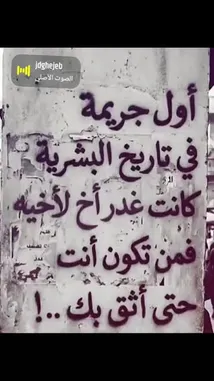 jdghejeb
الصوت الأصلي
أول جريمة
في تاريخ البشرية
كانت غدر أخ لأخيه
فمن تكون أنت
حتى أثق بك ..!